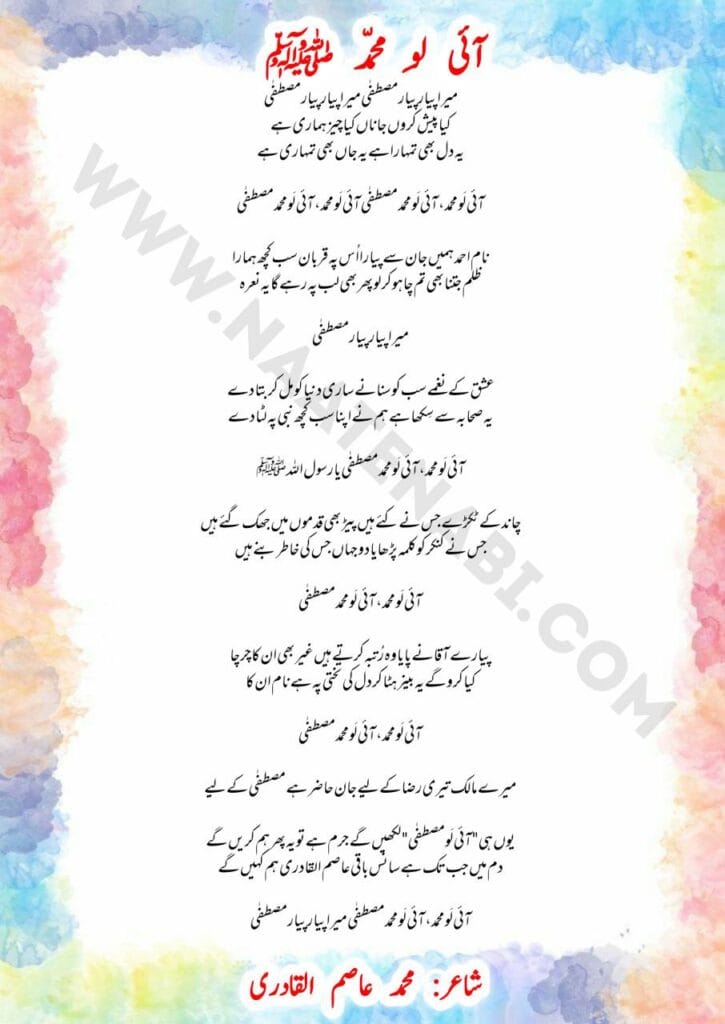 آئی لو محمدّ ﷺ
میرا پیار پیار مصطفٰی میرا پیار پیار مصطفٰی
کیا پیش کروں جاناں کیا چیز ہماری ہے
یہ دل بھی تمہارا ہے یہ جاں بھی تمہاری ہے
آئی لَو محمد، آئی لَو محمد مصطفٰی آئی لَو محمد، آئی لَو محمد مصطفٰی
نام احمد ہمیں جان سے پیارا اُس پہ قربان سب کچھ ہمارا
ظلم جتنا بھی تم چاہو کر لو پھر بھی لب پہ رہے گا یہ نعرہ
میرا پیار پیار مصطفٰی
عشق کے نغمے سب کو سنانے ساری دنیا کو مل کر بتا دے
یہ صحابہ سے سِکھا ہے ہم نے اپنا سب کچھ نبی پہ لٹا دے
آئی لَو محمد، آئی لَو محمد مصطفٰی یا رسول اللہ ﷺ
چاند کے ٹکڑے جس نے کئے ہیں پیڑ بھی قدموں میں جھک گئے ہیں
جس نے کنکر کو کلمہ پڑھایا دو جہاں جس کی خاطر بنے ہیں
آئی لَو محمد، آئی لَو محمد مصطفٰی
پیارے آقا نے پایا وہ رُتبہ کرتے ہیں غیر بھی ان کا چرچا
کیا کرو گے یہ بینر ہٹا کر دل کی تختی پہ ہے نام ان کا
آئی لَو محمد، آئی لَو محمد مصطفٰی
میرے مالک تیری رضا کے لیے جان حاضر ہے مصطفٰی کے لیے
یوں ہی "آئی لَو مصطفٰی" لکھیں گے جرم ہے تو یہ پھر ہم کریں گے
دم میں جب تک ہے سانس باقی عاصم القادری ہم کہیں گے
آئی لَو محمد، آئی لَو محمد مصطفٰی میرا پیار پیار مصطفٰی
شاعر: محمد عاصم القادری
WWW.NAATENABI.COM